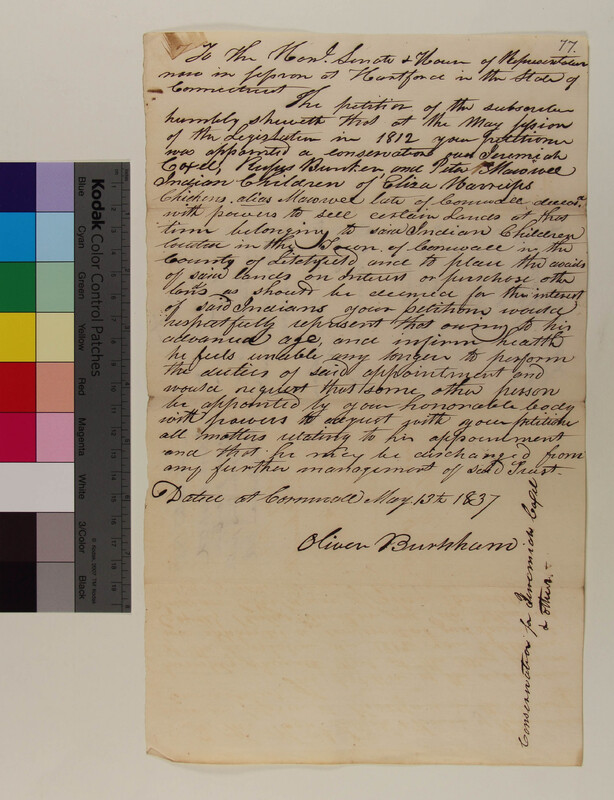 77.
To the Hon.l Senate & House of Representatives
now in session at Hartford in the State of
Connecticut
The petition of the subscriber
humbly sheweth that at the May session
of the Legislature in 1812 your petitioner
was appointed a conservator over Jeremiah
Cogsel, Rufus Bunker and Peter Mawwee
Indian Children of Eliza Warrups
Chickens, alias Mawwee late of Cornwall deceasd.
with powers to sell certain Lands at that
time belonging to said Indian Children
located in the Town of Cornwall in the
County of Litchfield and to place the avails
of said lands on Interest or purchase other
lands as should be deemed for the interest
of said Indians your petitioner would
respectfully represent that owing to his
advanced age, and infirm health
he feels unable any longer to perform
the duties of said appointment and
would request that some other person
be appointed by your honorable body
with powers to adjust with your petitioner
all matters relating to his appointment
and that he may be discharged from
any further management of said Trust.
Dated at Cornwall May 13th 1837
Oliver Burnham
Conservator for Jeremiah Cogsel
& others
Kodak Color Control Patches
Blue
Cyan
Green
Yellow
Red
Magenta
White
3/Color
Black